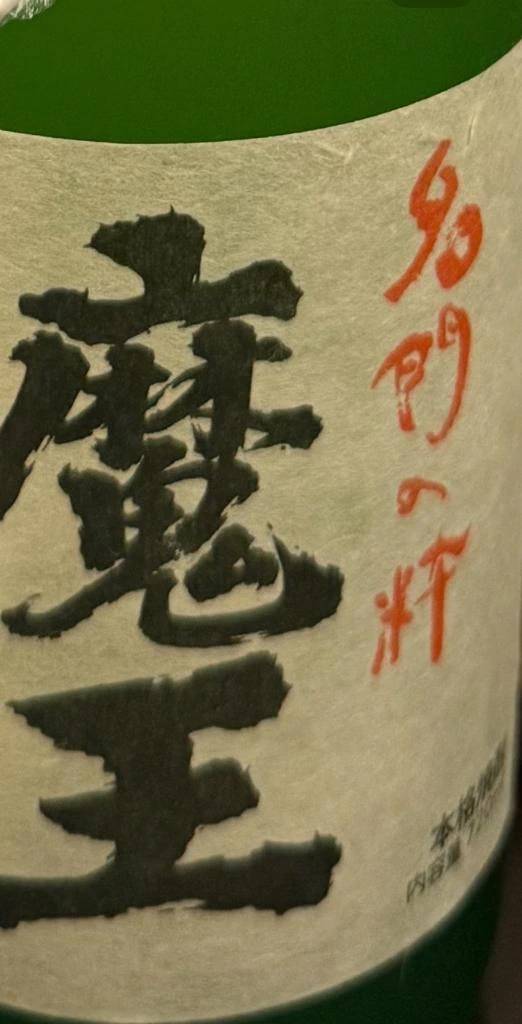 名門の粋
魔王
本格焼酎
内容量 720